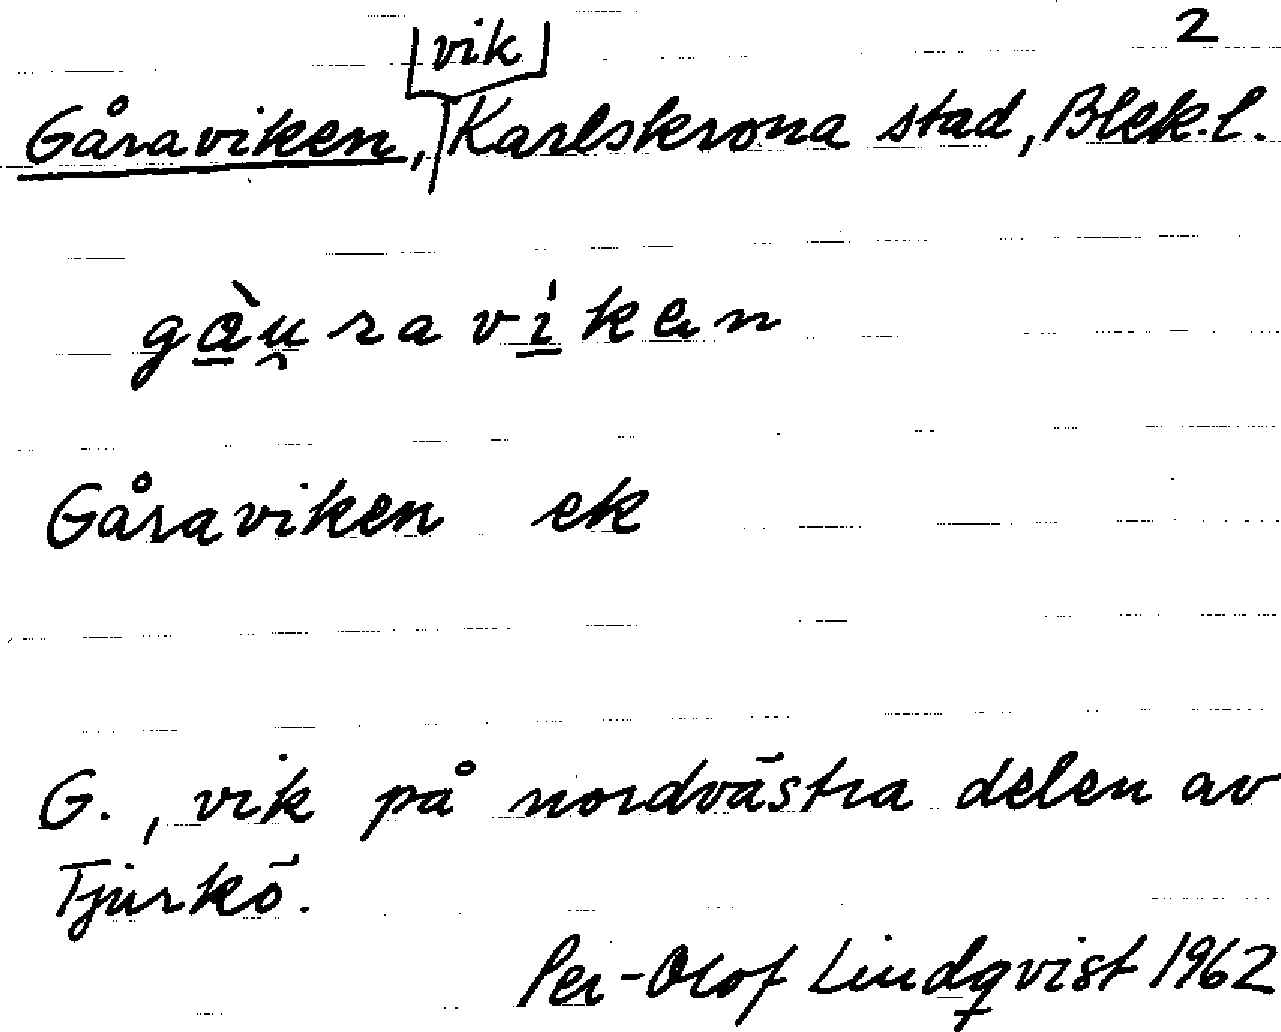 2
vik
Gåraviken, Karlskrona stad, Blek.l.
gàu̯raviken
Gåraviken ek
G., vik på nordvästra delen av
Tjurkö.
Per-Olof Lindqvist 1962